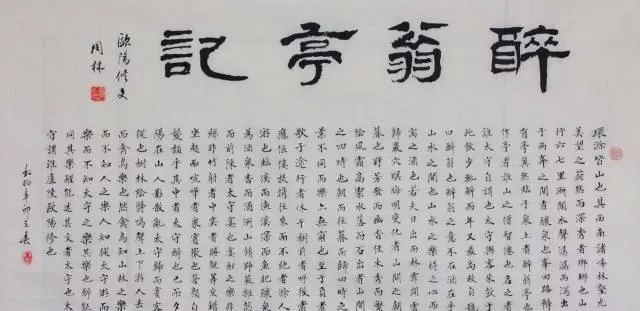 醉翁亭記
歐陽修文
周林
環滁皆山也其西南諸峰林壑尤
美望之蔚然而深秀者瑯琊也山
行六七里漸聞水聲潺潺而瀉出
于兩峯之間者釀泉也峯回路轉
有亭翼然臨于泉上者醉翁亭也
作亭者誰山之僧智僊也名之者
誰太守自謂也太守與客來飲于
此飲少輒醉而年又最高故自號
曰醉翁也醉翁之意不在酒在乎
山水之間也山水之樂得之心而
寓之酒也若夫日出而林霏開雲
歸巖穴暝晦明變化者山間之朝
暮也野芳發而幽香佳木秀而繁
陰風霜高潔水落而石出者山間
之四時也朝而往暮而歸四時之
景不同而樂亦無窮也至于負者
歌于途行者休于樹前者呼後者
應傴僂提携往來而不絕者滁人
遊也臨溪而漁溪深而魚肥釀泉
為酒泉香而酒洌山肴野蔌雜然
而前陳者太守宴也宴酣之樂非
絲非竹射者中奕者勝觥籌交錯
坐起而諠嘩者衆賓歡也蒼顏白
髮頹乎其中者太守醉也已而夕
陽在山人影散亂太守歸而賓客
從也樹林陰翳鳴聲上下遊人去
而禽鳥樂也然禽鳥知山林之樂
而不知人之樂人知從太守遊而
樂而不知太守之樂其樂也醉能
同其樂醒能述其文者太守也太
守謂誰廬陵歐陽修也
辛卯立春